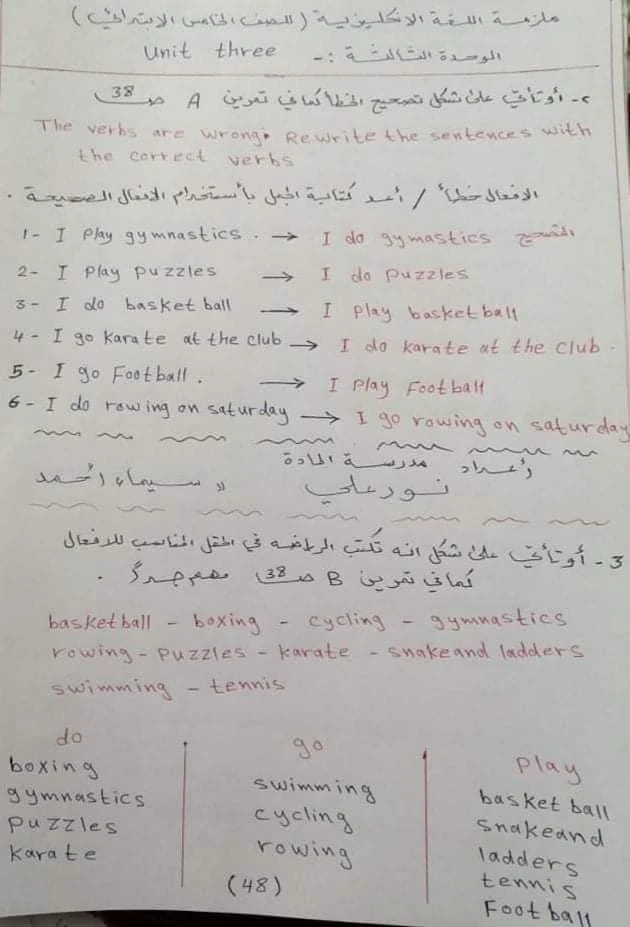 ملزمة اللغة الانكليزية (للصف الخامس الابتدائي)
الوحدة الثالثة :- Unit three
2- أو تأتي على شكل تصحيح الخطأ كما في تمرين A ص 38
The verbs are wrong. Rewrite the sentences with
the correct verbs
الافعال خطأ / أعد كتابة الجمل بأستخدام الافعال الصحيحة .
1- I Play gymnastics . → I do gymastics التصحيح
2- I Play Puzzles → I do Puzzles
3- I do basket ball → I Play basket ball
4- I go karate at the club → I do karate at the club .
5- I go Football . → I Play Football
6- I do rowing on saturday → I go rowing on saturday
وأعداد مدرسة المادة
نور علي
سيماء أحمد
3- أو تأتي على شكل انه تكتب الرياضه في الحقل المناسب للافعال
كما في تمرين B ص 38 مهم جداً .
basketball - boxing - cycling - gymnastics
rowing - Puzzles - karate - snakeand ladders
swimming - tennis
do
boxing
gymnastics
Puzzles
karate
go
swimming
cycling
rowing
Play
basket ball
snakeand
ladders
tennis
Football
(48)